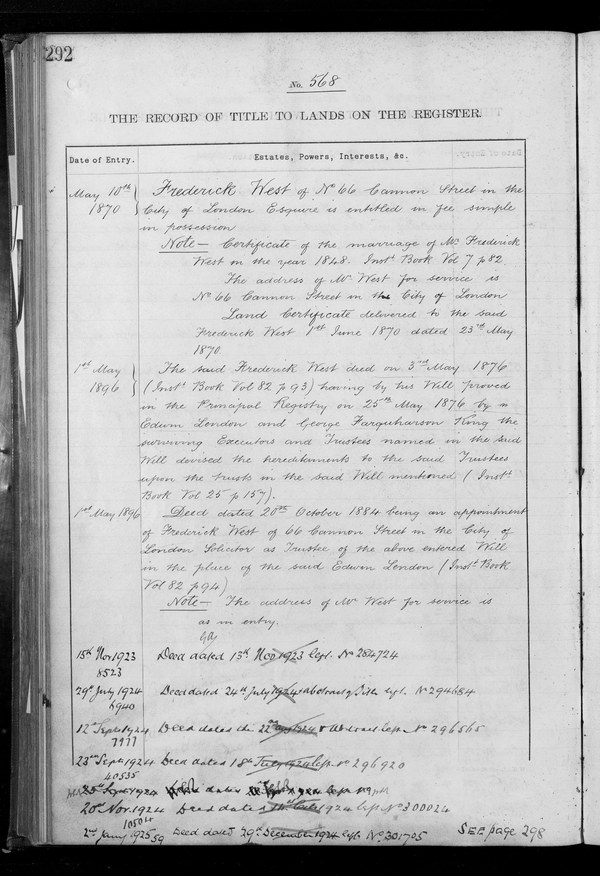 292
No. 568
THE RECORD OF TITLE TO LANDS ON THE REGISTER.
Date of Entry. Estates, Powers, Interests, &c.
May 10th 1870 Frederick West of No 66 Cannon Street in the
City of London Esquire is entitled in fee simple
in possession
Note— Certificate of the marriage of Mr Frederick
West in the year 1848. Inst. Book Vol 7 p 82.
The address of Mr West for service is
No 66 Cannon Street in the City of London
Land Certificate delivered to the said
Frederick West 1st June 1870 dated 23rd May
1870
1st May 1896 The said Frederick West died on 3rd May 1876
(Inst. Book Vol 82 p 93) having by his Will proved
in the Principal Registry on 25th May 1876 by
Edwin London and George Farquharson King the
surviving Executors and Trustees named in the said
Will devised the hereditaments to the said Trustees
upon the trusts in the said Will mentioned (Inst.
Book Vol 25 p 157).
1st May 1896 Deed dated 20th October 1884 being an appointment
of Frederick West of 66 Cannon Street in the City of
London Solicitor as Trustee of the above entered Will
in the place of the said Edwin London (Inst. Book
Vol 82 p 94)
Note— The address of Mr West for service is
as in entry.
15th Nov 1923 Deed dated 13th Nov 1923 No 284724
8523
29th July 1924 Deed dated 24th July 1924 & abstract of title No 294684
6940
12th Sept 1924 Deed dated the & Abstract No 296565
7977
23rd Sept 1924 Deed dated 18th No 296920
40535
Sept 1924 dated
20th Nov. 1924 Deed dated 1924 No 300024
10504
2nd Jany 1925 Deed dated 29th December 1924 No. 301705 SEE page 298
59